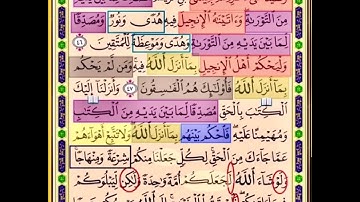 مِنَ ٱلتَّوْرَىٰةِ وَءَاتَيْنَٰهُ ٱلْإِنجِيلَ فِيهِ هُدًى وَنُورٌ وَمُصَدِّقًا
لِّمَا بَيْنَ يَدَيْهِ مِنَ ٱلتَّوْرَىٰةِ وَهُدًى وَمَوْعِظَةً لِّلْمُتَّقِينَ ٤٦
وَلْيَحْكُمْ أَهْلُ ٱلْإِنجِيلِ بِمَآ أَنزَلَ ٱللَّهُ فِيهِ وَمَن لَّمْ يَحْكُم
بِمَآ أَنزَلَ ٱللَّهُ فَأُو۟لَٰٓئِكَ هُمُ ٱلْفَٰسِقُونَ ٤٧ وَأَنزَلْنَآ إِلَيْكَ
ٱلْكِتَٰبَ بِٱلْحَقِّ مُصَدِّقًا لِّمَا بَيْنَ يَدَيْهِ مِنَ ٱلْكِتَٰبِ
وَمُهَيْمِنًا عَلَيْهِ فَٱحْكُم بَيْنَهُم بِمَآ أَنزَلَ ٱللَّهُ وَلَا تَتَّبِعْ أَهْوَآءَهُمْ
عَمَّا جَآءَكَ مِنَ ٱلْحَقِّ لِكُلٍّ جَعَلْنَا مِنكُمْ شِرْعَةً وَمِنْهَاجًا
وَلَوْ شَآءَ ٱللَّهُ لَجَعَلَكُمْ أُمَّةً وَٰحِدَةً وَلَٰكِن لِّيَبْلُوَكُمْ